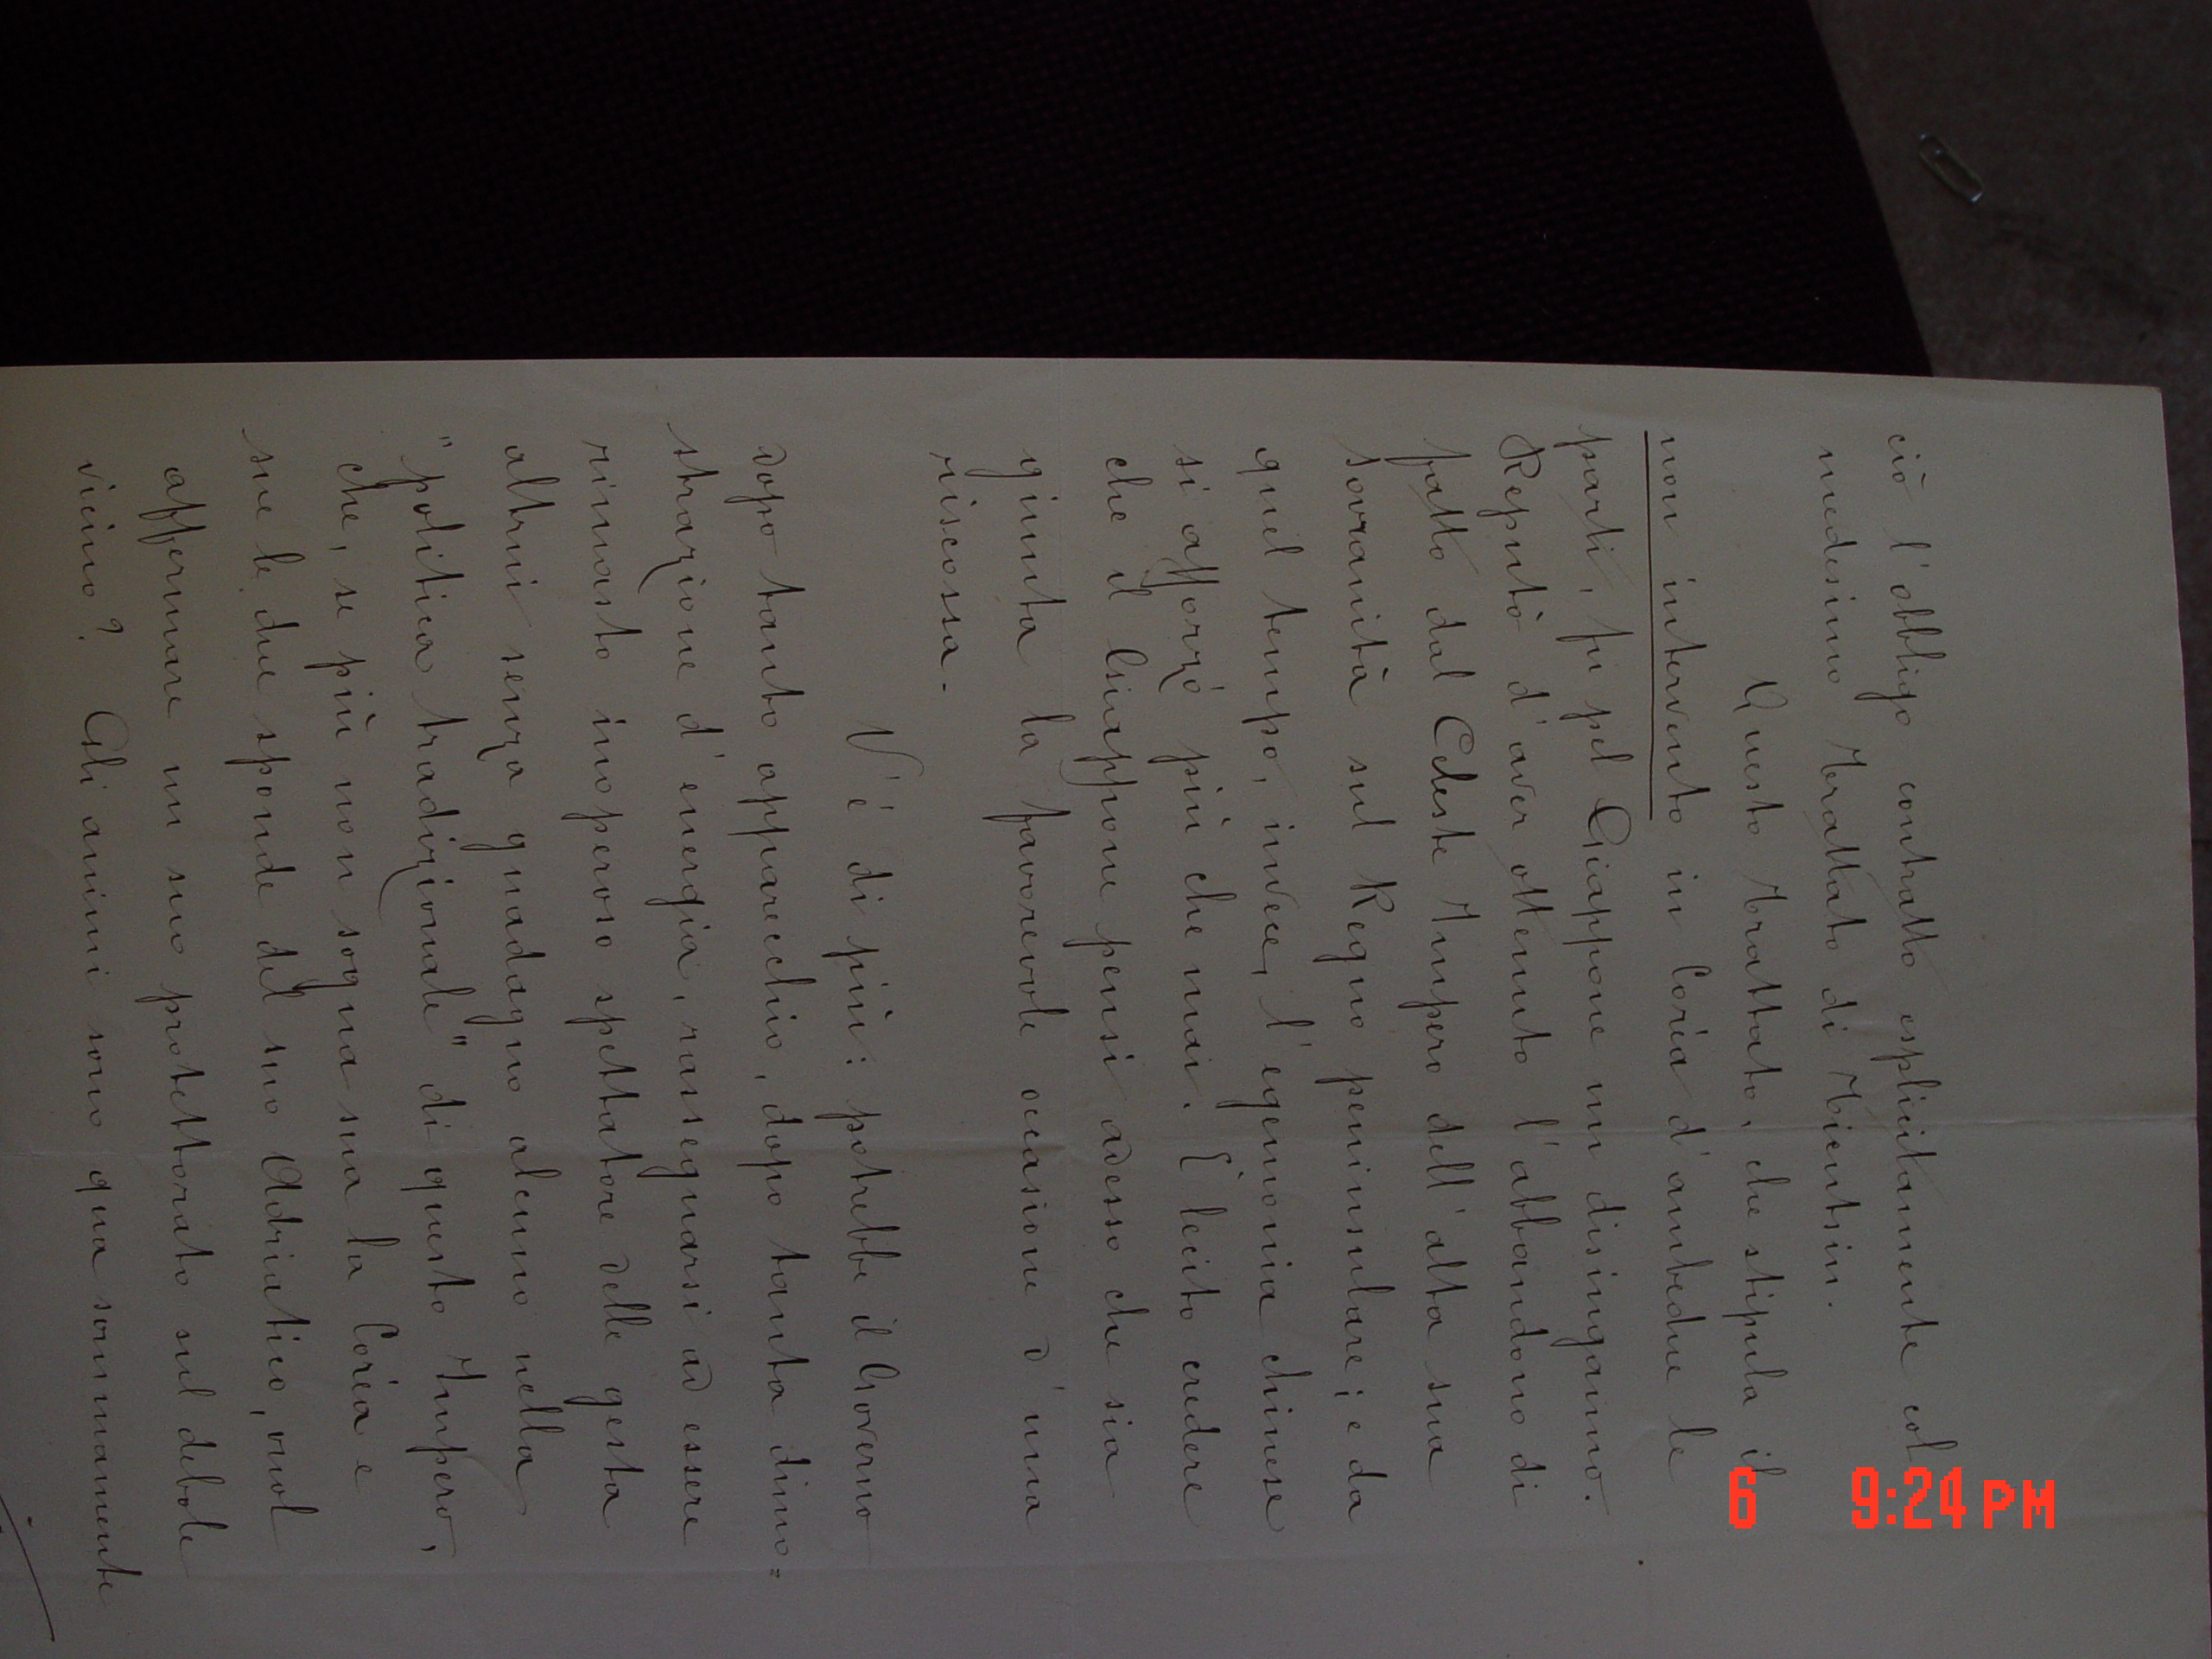 ciò l'obbligo contratto esplicitamente col
medesimo Trattato di Tientsin.
Questo Trattato, che stipula il
non intervento in Corèa d'ambedue le
parti, fu pel Giappone un disinganno.
Reputò d'aver ottenuto l'abbandono di
fatto dal Celeste Impero dell'alta sua
sovranità sul Regno peninsulare; e da
quel tempo, invece, l'egemonia chinese
si afforzò più che mai. È lecito credere
che il Giappone pensi adesso che sia
giunta la favorevole occasione d'una
riscossa.
V'è di più: potrebbe il Governo
dopo tanto apparecchio, dopo tanta dimo=
strazione d'energia, rassegnarsi ad essere
rimasto inoperoso spettatore delle gesta
altrui senza guadagno alcuno nella
"politica tradizionale" di questo Impero,
che, se più non sogna sua la Corèa e
sue le due sponde del suo Adriatico, vuol
affermare un suo protettorato sul debole
vicino? Gli animi sono qua sommamente
6 9:24 PM